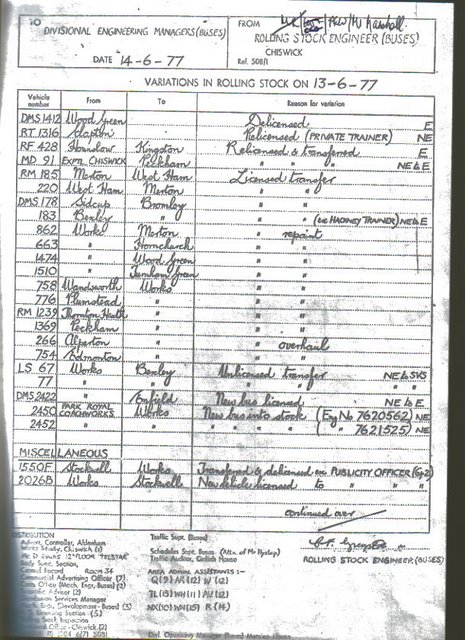 TO
DIVISIONAL ENGINEERING MANAGERS (BUSES)
DATE 14-6-77
FROM
ROLLING STOCK ENGINEER (BUSES)
CHISWICK
Ref. 508/1
VARIATIONS IN ROLLING STOCK ON 13-6-77
Vehicle number From To Reason for variation
DMS 1412 Wood Green Delicensed E
RT 1316 Clapton Relicensed (PRIVATE TRAINER) NE
RF 428 Hounslow Kingston Relicensed & transferred E
MD 91 EXPTL CHISWICK Peckham " " " NE & E
RM 185 Merton West Ham Licensed transfer
220 West Ham Merton " "
DMS 178 Sidcup Bromley " "
183 Bexley " " " (ex HACKNEY TRAINER) NE & E
862 Works Merton " repaint
663 " Hornchurch " "
1474 " Wood Green " "
1510 " Turnham Green " "
758 Wandsworth Works " "
776 Plumstead " " "
RM 1239 Thornton Heath " " "
1369 Peckham " " "
266 Alperton " " overhaul
754 Edmonton " " "
LS 67 Works Bexley Unlicensed transfer NE & SVS
77 " " " " "
DMS 2422 " Enfield New bus licensed NE & E
2450 PARK ROYAL COACHWORKS Works New bus into stock (Eng No 7620562) NE
2452 " " " " " ( " " 7621525) NE
MISCELLANEOUS
1550F Stockwell Works Transferred & delicensed ex PUBLICITY OFFICER (Gp2)
2026B Works Stockwell New vehicle licensed to " " "
continued over
ROLLING STOCK ENGINEER (BUSES)
DISTRIBUTION
Advert. Controller, Aldenham
Works Study, Chiswick
Mr D EVANS 12th FLOOR TELSTAR
Body Supt. Section,
Record ROOM 34
Commercial Advertising Officer
Office (Mech. Engr. Buses)
Services Manager
Engr., Development - Buses)
Rolling Stock Inspection
Office - Chiswick
Traffic Supt. (Buses)
Schedules Supt. Buses. (Attn. of Mr Hyslop)
Traffic Auditor, Griffith House
AREA ADMIN ASSISTANTS :-
Q (9) AK (12) W (12)
TL (15) WH (11) AV (12)
NX (10) WN (15) R (14)
Divl. Operating Manager (Buses) Mansion House